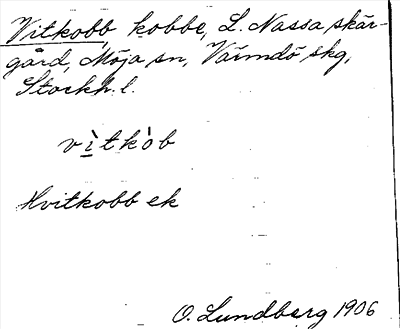 Vitkobb kobbe, L. Nassa skär-
gård, Möja sn, Värmdö skg,
Stockh. l.
vìtkòb
Hvitkobb ek
O. Lundberg 1906